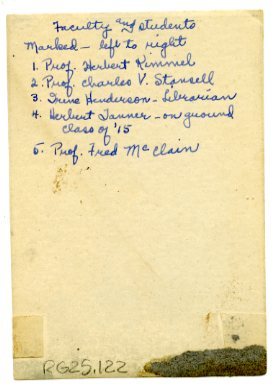 Faculty and students
Marked - left to right
1. Prof. Herbert Kimmel
2. Prof. Charles V. Stansell
3 Irene Henderson - Librarian
4. Herbert Tanner - on ground
class of '15
5. Prof. Fred McClain
RG25.122